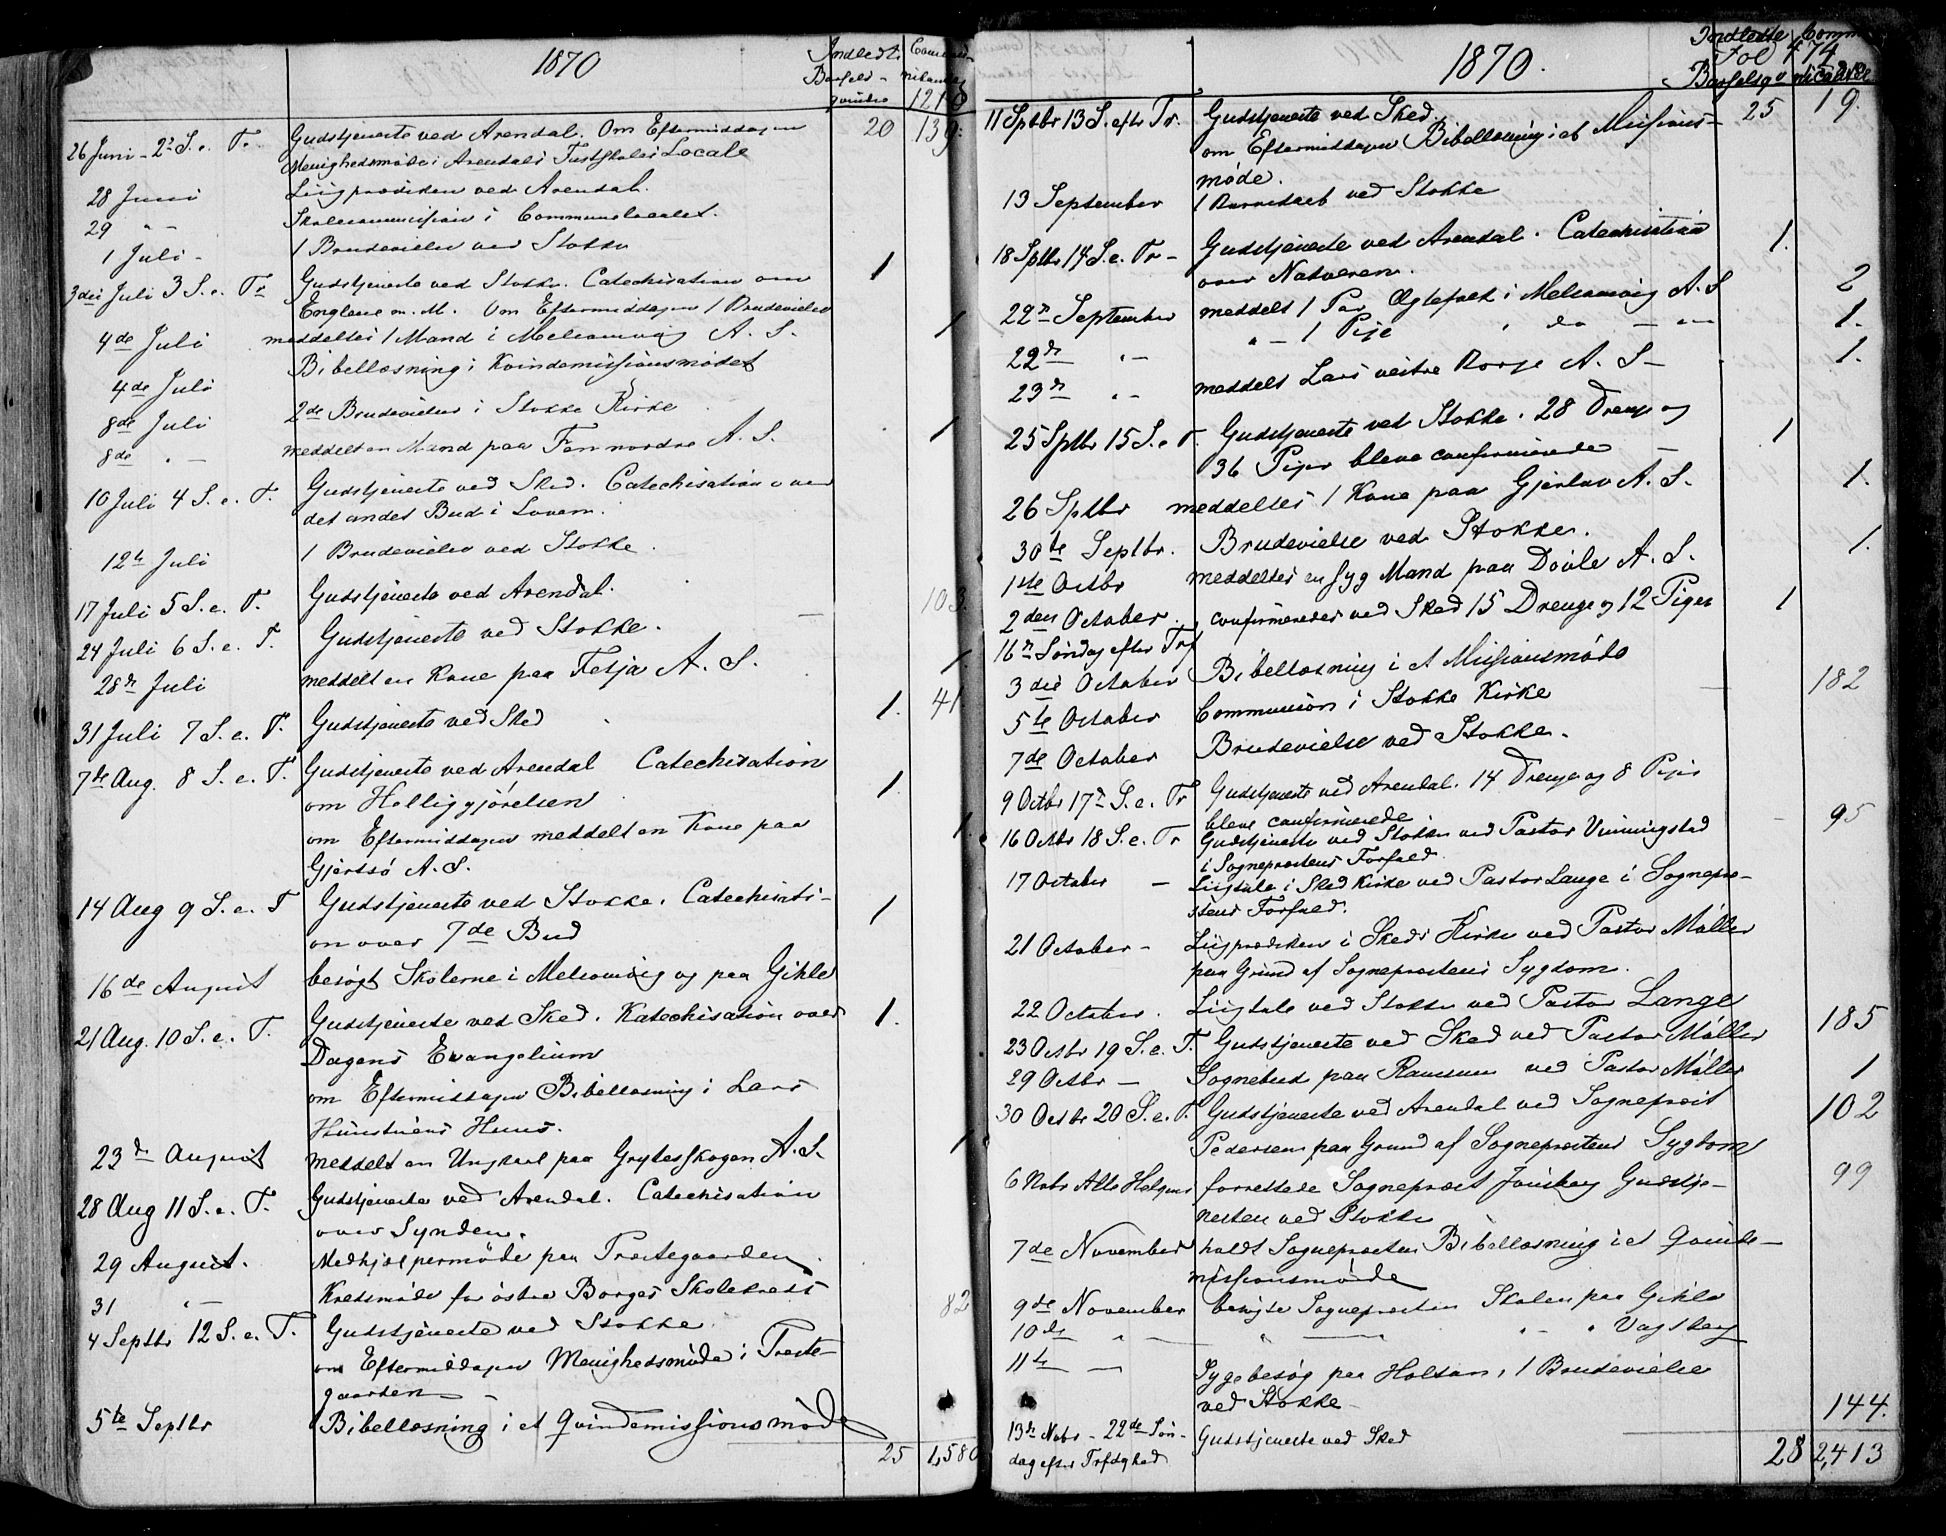 1870
Indledte
Barsel-
qvinder
1210
26 Juni - 2 S. e. Tr. Gudstjeneste ved Arendal. Om Eftermiddagen 20 139.
Menighedsmøde i Arendals Fastskoles Locale
28 Juni Liigprædiken ved Arendal.
29 " - Skolecommission i Communelocalet.
1 Juli - 1 Brudevielse ved Stokke
3die Juli 3 S. e. Tr Gudstjeneste ved Stokke. Catechisation om 1
Englene m. M. Om Eftermiddagen 1 Brudevielse
4de Juli meddeltes 1 Mand i Melsomvig A. S. 1
4de Juli Bibellæsning i Kvindemissionsmødet
8de Juli 2de Brudevielser i Stokke Kirke
8de " - meddelt en Mand paa Fen nordre A. S. 1
10 Juli 4 S. e. T. Gudstjeneste ved Sked. Catechisation over
det andet Bud i Loven.
12te Juli 1 Brudevielse ved Stokke.
17 Juli 5 S. e. T. Gudstjeneste ved Arendal. 103.
24 Juli 6 S. e. T. Gudstjeneste ved Stokke. —
28de Juli meddelt en Kone paa Fetja A. S. 1
31 Juli 7 S. e. T. Gudstjeneste ved Sked 1. 41
7de Aug. 8 S. e. T. Gudstjeneste ved Arendal Catechisation
om Helliggjørelsen 1.
om Eftermiddagen meddelt en Kone paa 1.
Gjertsø A. S.
14 Aug 9 S. e. T Gudstjeneste ved Stokke. Catechisati- 1
on over 7de Bud
16de August besøgt Skolerne i Melsomvig og paa Gihle
21 Aug. 10 S. e. T. Gudstjeneste ved Sked. Katechisation over 1.
Dagens Evangelium
om Eftermiddagen Bibellæsning i Lars
Huus.
23de August meddelt en Ungkarl paa Grytesskogen A. S. 1
28 Aug 11 S. e. T. Gudstjeneste ved Arendal. Catechisation
over Synden.
29 August. Medhjælpermøde paa Præstegaarden.
31 " — Kredsmøde for østre Borges Skolekreds
4 Septbr 12 S. e. T. Gudstjeneste ved Stokke 82
om Eftermiddagen Menighedsmøde i Præste-
gaarden —
5te Septbr Bibellæsning i et Qvindemissionsmøde
25 1,580
1870.
Indledte Comm
Fol 474
Barselsqv nicanter
11 Septbr 13 S. efter Tr. Gudstjeneste ved Sked. 25 19.
om Eftermiddagen Bibellæsning i et Missions-
møde.
13 September 1 Barnedaab ved Stokke
18 Sptbr 14 S. e. Tr - Gudstjeneste ved Arendal. Catechisation 1.
over Nadveren.
22de September meddelt 1 Par Ægtefolk i Melsomvig A. S 2
22de " - " - 1 Pige " do — " — 1.
23de " - meddelt Lars vestre Borge A. S - 1.
25 Sptbr 15 S. e T. Gudstjeneste ved Stokke. 28 Drenge og 1
36 Piger bleve confirmerede —
26 Sptbr meddeltes 1 Kone paa Gjerlav A. S. 1.
30te Septbr. Brudevielse ved Stokke.
1ste Octbr meddeltes en syg Mand paa Døvle A. S. 1.
2den October. confirmeredes ved Sked 15 Drenge og 12 Piger 1
16de Søndag efter Trf
3die October Bibellæsning i et Missionsmøde
5te October Communion i Stokke Kirke — 182
7de October Brudevielse ved Stokke.
9 Octbr 17de S. e. Tr Gudstjeneste ved Arendal. 14 Drenge og 8 Piger
bleve confirmerede. - 95
16 Octbr 18 S. e. Tr Gudstjeneste ved Stokke ved Pastor Vinningstad
i Sognepræstens Forfald.
17 October — Liigtale i Sked Kirke ved Pastor Lange i Sognepræ-
stens Forfald.
21 October - Liigprædiken i Skeds Kirke ved Pastor Møller
paa Grund af Sognepræstens Sygdom.
22 October. Liigtale ved Stokke ved Pastor Lange
23 Octbr 19 S. e. T. Gudstjeneste ved Sked ved Pastor Møller 185
29 Octbr — Sognebud paa Ramsum ved Pastor Møller 1
30 Octbr 20 S. e T. Gudstjeneste ved Arendal ved Sognepræst 102
Pedersen paa Grund af Sognepræstens Sygdom
6 Nobr Alle Helgens forrettede Sognepræst Gudstje- 99
nesten ved Stokke
7de November holdt Sognepræsten Bibellæsning i et Qvinde-
missionsmøde
9de November besøgte Sognepræsten Skolen paa Gihle
10de " — " — " - " Vagsberg
11te — Sygebesøg paa Holtan, 1 Brudevielse
ved Stokke - 144.
13de Nobr - 22de Søn- Gudstjeneste ved Sked
dag efter Trefdghed 28 2,413